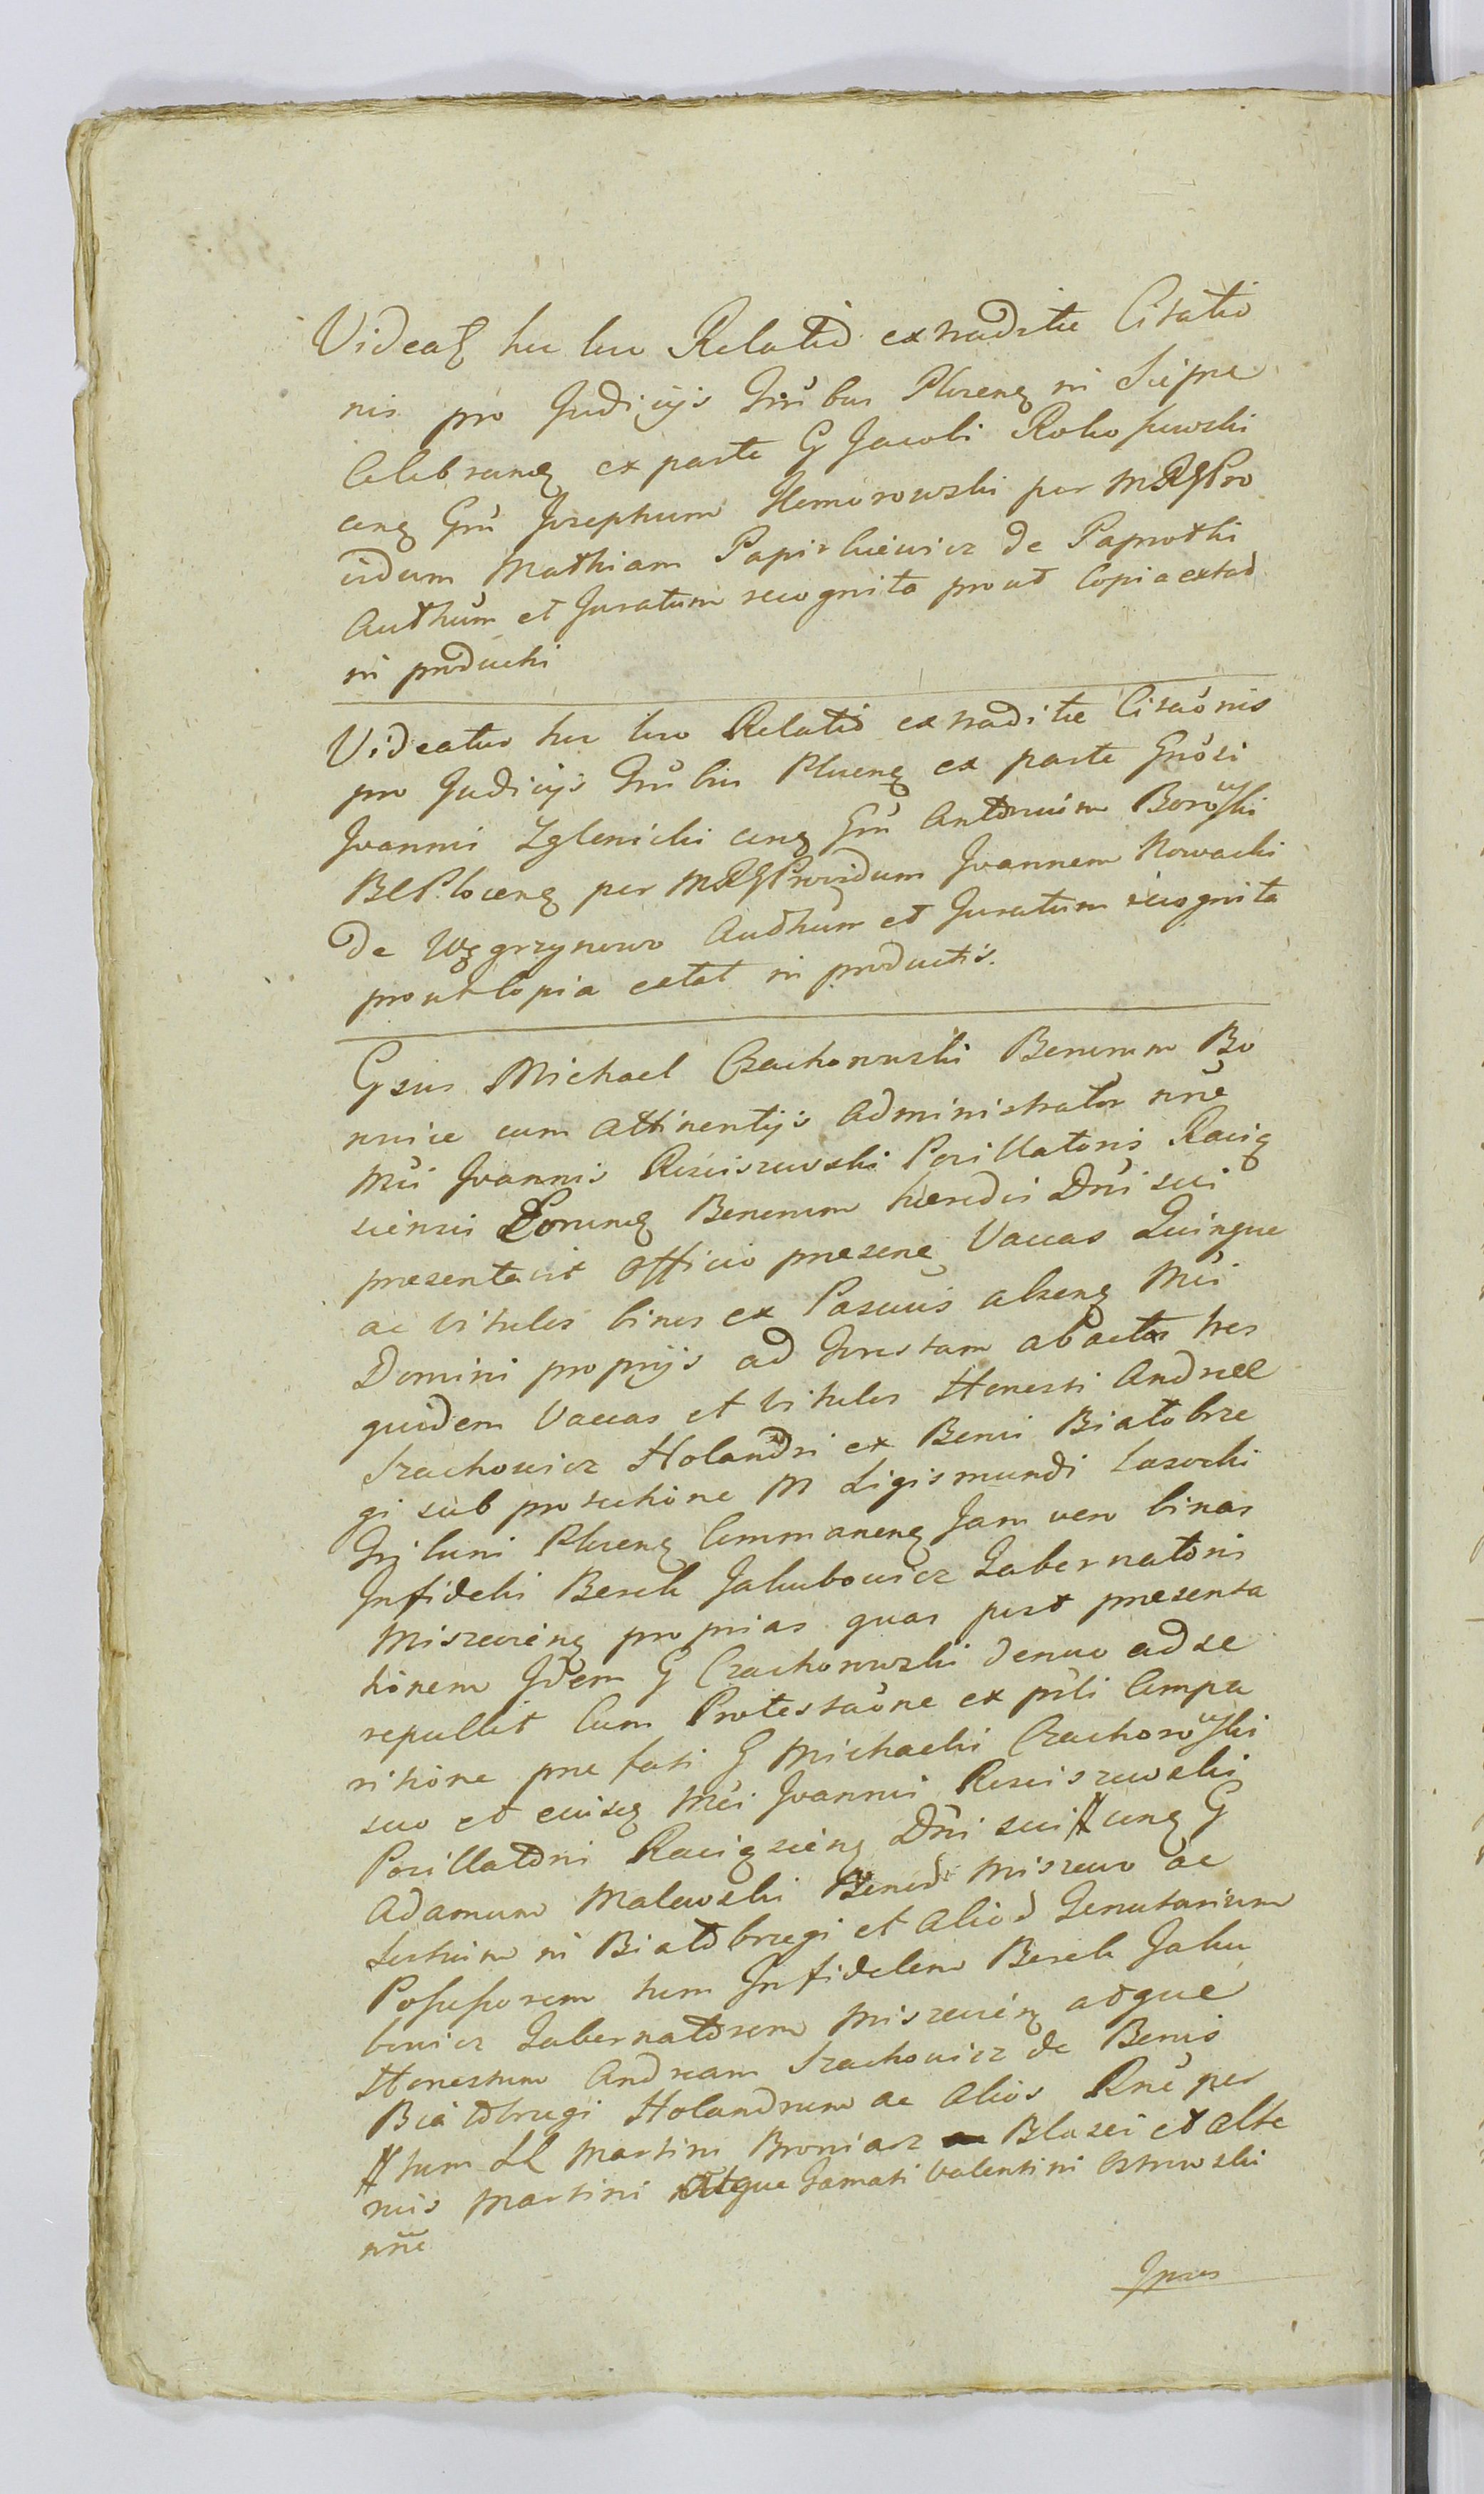 Videatꝫ hic loco Relatio extraditæ Citatio
nis pro Judicijs Trribus Plocenꝫ in Siepne
Celebranꝫ ex parte G Jacobi Rokossewski
conꝫ Gnū Josephum Komorowski per MRG Pro
vidum Mathiam Papirkiewicz de Paprotki
Authūm et Juratum recognita prout Copia extat
in producti
Videatur hic loco Relatio extraditæ Citaōnis
pro Judicijs Trribus Plocenꝫ ex parte Gnōsi
Joannis Zglenicki conꝫ Gnū Antonium Borowski
BCPlocenꝫ per MRG Providum Joannem Nowacki
de Węgrzynowo Authum et Juratum recognita
prout Copia extat in productis.
Gsus Michael Czachorowski Bonorum Bo
rovice cum attinentijs Administrator nñe
Mci Joannis Rosciszewski Pocillatoris Raciꝫ
ziensis Eorumꝫ Bonorum hæredis Dñi sui
presentavit officio præsenꝫ Vaccas Quinque
ac Vitulos binos ex Pascuis absenꝫ Mci
Domini proprijs ad Forestam abactos tres
quidem Vaccas et Vitulos Honesti Andreæ
Szachowicz Holandri ex Bonis Białobrze
gi sub protectione M Sigismundi Lasocki
Tribuni Plocenꝫ Commanenꝫ Jam vero binas
Infidelis Berek Jakubowicz Tabernatoris
Miszewienꝫ proprias quas post præsenta
tionem Idem G Czachorowski denuo ad se
repullit Cum Protestaōne ex prsli Compa
ritione præfati G Michaelis Czachorowski
suo et eiusꝫ Mci Joannis Rosciszewski
Pocillatoris Raciązienꝫ Dñi sui # conꝫ G
Adamum Malewski Bonorum Miszewo ac
Sortium in Białobrzegi et Aliod Tenutarium
Possessorem tum Infidelem Berek Jaku
bowicz Tabernatorem Miszewienꝫ atque
Honestum Andream Szachowicz de Bonis
Białobrzegi Holandrum ac Alios Rne per
# tum LL Martini Broniarz Blasei et alte
rius Martini Atque Famati Valentini Ostrowski
nñe
Ipsos